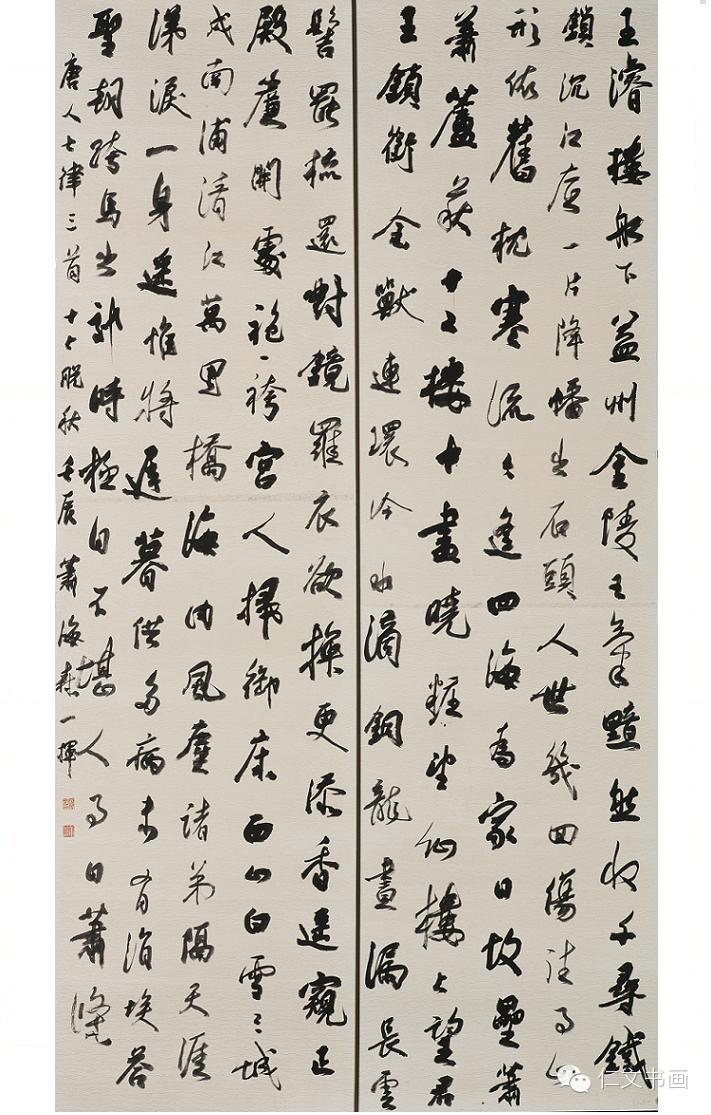 王濬樓船下益州金陵王氣黯然收千尋鐵
鎖沉江底一片降幡出石頭人世幾回傷往事山
形依舊枕寒流今逢四海為家日故壘蕭
蕭蘆荻十二樓中盡曉粧望仙樓上望君
王鎖銜金獸連環冷水滴銅龍晝漏長雲
髻罷梳還對鏡羅衣欲換更添香遥窺正
殿簾開處袍袴宮人掃御床西山白雪三城
戍南浦清江萬里橋海內風塵諸弟隔天涯
涕淚一身遥惟將遲暮供多病未有涓埃答
聖朝跨馬出郊時極目不堪人事日蕭條
唐人七律三首 壬辰 蕭海 一揮
仁文书画